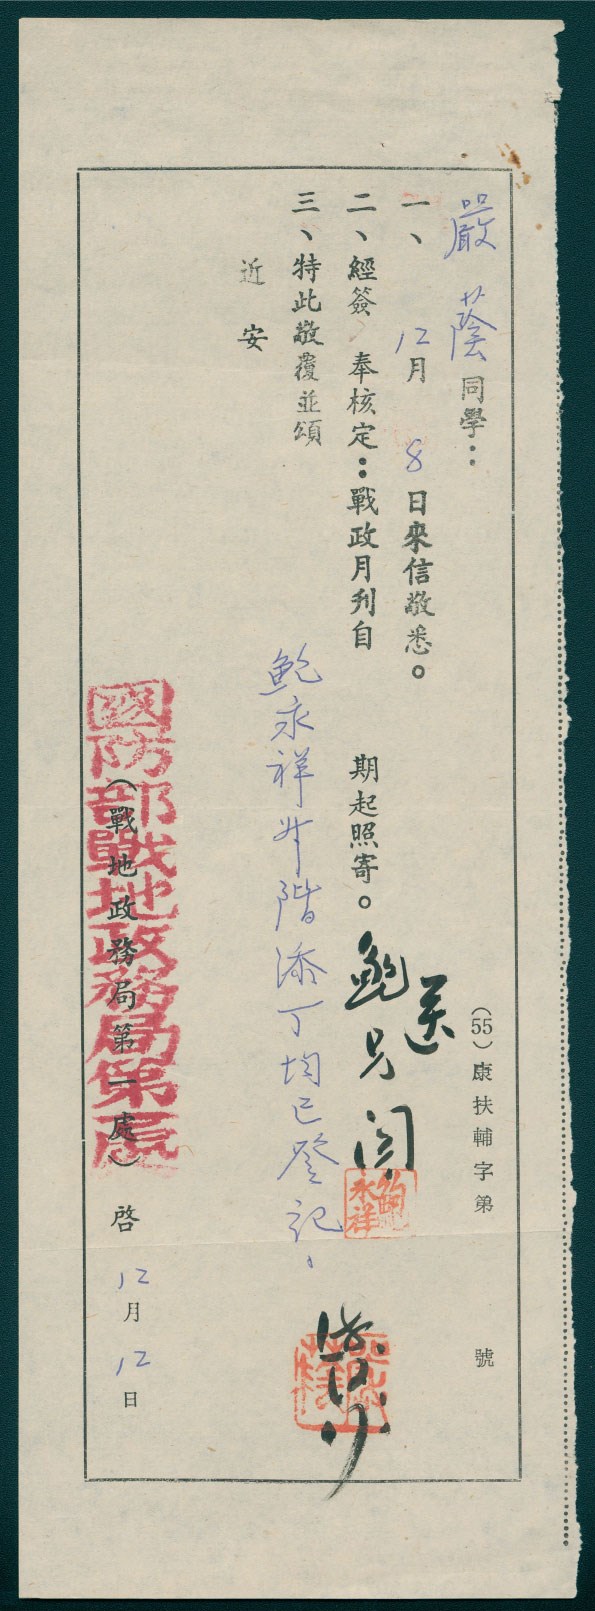 嚴蔭同學：
一、12月8日來信敬悉。
二、經簽奉核定：戰政月刊自　期起照寄。
三、特此敬覆並頌
近安
鮑永祥升階添丁均已登記。
送
鮑兄閱
鮑永祥
（55）康扶輔字第　號
國防部戰地政務局第一處
（戰地政務局第一處）啓12月12日